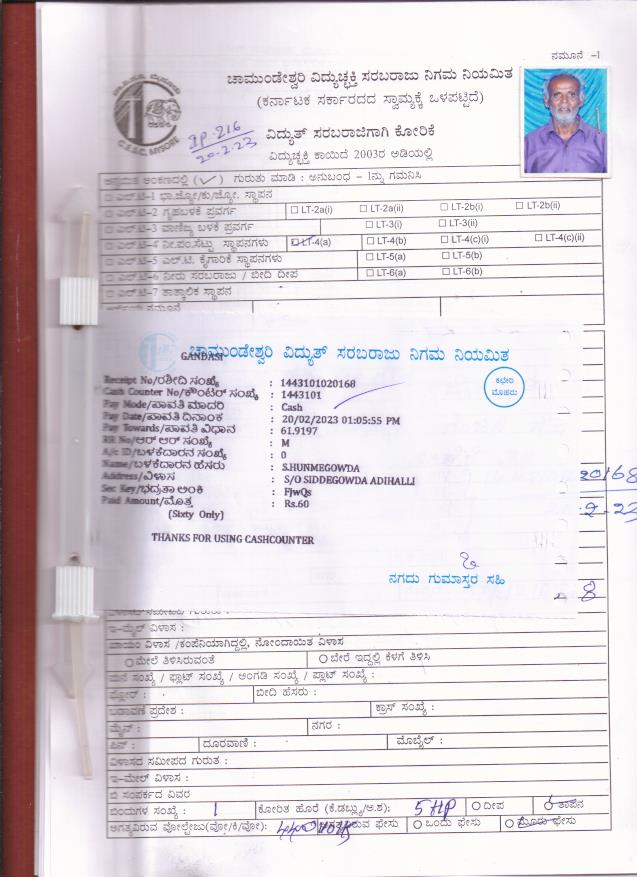 ನಮೂನೆ -1
ಚಾಮುಂಡೇಶ್ವರಿ ವಿದ್ಯುಚ್ಛಕ್ತಿ ಸರಬರಾಜು ನಿಗಮ ನಿಯಮಿತ
(ಕರ್ನಾಟಕ ಸರ್ಕಾರದದ ಸ್ವಾಮ್ಯಕ್ಕೆ ಒಳಪಟ್ಟಿದೆ)
C.E.S.C. MYSORE
20-2-23
ವಿದ್ಯುತ್ ಸರಬರಾಜಿಗಾಗಿ ಕೋರಿಕೆ
ವಿದ್ಯುಚ್ಛಕ್ತಿ ಕಾಯಿದೆ 2003ರ ಅಡಿಯಲ್ಲಿ
ಅನ್ವಯಿತ ಅಂಕಣದಲ್ಲಿ (✓) ಗುರುತು ಮಾಡಿ : ಅನುಬಂಧ – 1ನ್ನು ಗಮನಿಸಿ
☐ ಎಲ್.ಟಿ-1 ಭಾ.ಜ್ಯೋ/ಕು/ಜ್ಯೋ. ಸ್ಥಾಪನ
☐ ಎಲ್.ಟಿ-2 ಗೃಹಬಳಕೆ ಪ್ರವರ್ಗ ☐ LT-2a(i) ☐ LT-2a(ii) ☐ LT-2b(i) ☐ LT-2b(ii)
☐ ಎಲ್.ಟಿ-3 ವಾಣಿಜ್ಯ ಬಳಕೆ ಪ್ರವರ್ಗ ☐ LT-3(i) ☐ LT-3(ii)
☐ ಎಲ್.ಟಿ-4 ನೀ.ಪಂ.ಸೆಟ್ಟು ಸ್ಥಾಪನಗಳು ☐ LT-4(a) ☐ LT-4(b) ☐ LT-4(c)(i) ☐ LT-4(c)(ii)
☐ ಎಲ್.ಟಿ-5 ಎಲ್.ಟಿ. ಕೈಗಾರಿಕೆ ಸ್ಥಾಪನಗಳು ☐ LT-5(a) ☐ LT-5(b)
☐ ಎಲ್.ಟಿ-6 ನೀರು ಸರಬರಾಜು / ಬೀದಿ ದೀಪ ☐ LT-6(a) ☐ LT-6(b)
☐ ಎಲ್.ಟಿ-7 ತಾತ್ಕಾಲಿಕ ಸ್ಥಾಪನ
ಚಾಮುಂಡೇಶ್ವರಿ ವಿದ್ಯುತ್ ಸರಬರಾಜು ನಿಗಮ ನಿಯಮಿತ
GANDASI
ಕಛೇರಿ
ಮೊಹರು
Receipt No/ರಶೀದಿ ಸಂಖ್ಯೆ : 1443101020168
Cash Counter No/ಕೌಂಟರ್ ಸಂಖ್ಯೆ : 1443101
Pay Mode/ಪಾವತಿ ಮಾದರಿ : Cash
Pay Date/ಪಾವತಿ ದಿನಾಂಕ : 20/02/2023 01:05:55 PM
Pay Towards/ಪಾವತಿ ವಿಧಾನ : 61.9197
RR No/ಆರ್ ಆರ್ ಸಂಖ್ಯೆ : M
A/c ID/ಬಳಕೆದಾರನ ಸಂಖ್ಯೆ : 0
Name/ಬಳಕೆದಾರನ ಹೆಸರು : S.HUNMEGOWDA
Address/ವಿಳಾಸ : S/O SIDDEGOWDA ADIHALLI
Sec Key/ಭದ್ರತಾ ಅಂಕಿ : FJwQs
Paid Amount/ಮೊತ್ತ : Rs.60
(Sixty Only)
20168
THANKS FOR USING CASHCOUNTER
ನಗದು ಗುಮಾಸ್ತರ ಸಹಿ
8
ಇ-ಮೈಲ್ ವಿಳಾಸ :
ಖಾಯಂ ವಿಳಾಸ /ಕಂಪೆನಿಯಾಗಿದ್ದಲ್ಲಿ, ನೋಂದಾಯಿತ ವಿಳಾಸ
○ ಮೇಲೆ ತಿಳಿಸಿರುವಂತೆ ○ ಬೇರೆ ಇದ್ದಲ್ಲಿ ಕೆಳಗೆ ತಿಳಿಸಿ
ಮನೆ ಸಂಖ್ಯೆ / ಫ್ಲಾಟ್ ಸಂಖ್ಯೆ / ಅಂಗಡಿ ಸಂಖ್ಯೆ / ಪ್ಲಾಟ್ ಸಂಖ್ಯೆ :
ಫ್ಲೋರ್ : ಬೀದಿ ಹೆಸರು :
ಬಡಾವಣೆ ಪ್ರದೇಶ : ಕ್ರಾಸ್ ಸಂಖ್ಯೆ :
ಮೈನ್ : ನಗರ :
ಪಿನ್ : ದೂರವಾಣಿ : ಮೊಬೈಲ್ :
ವಿಳಾಸದ ಸಮೀಪದ ಗುರುತ :
ಇ-ಮೇಲ್ ವಿಳಾಸ :
ಬಿ ಸಂಪರ್ಕದ ವಿವರ
ಬಿಂದುಗಳ ಸಂಖ್ಯೆ : 1 ಕೋರಿತ ಹೊರೆ (ಕೆ.ಡಬ್ಲ್ಯು/ಅ.ಶ): 5 HP ○ ದೀಪ ○ ತಾಪನ
ಅಗತ್ಯವಿರುವ ವೋಲ್ಟೇಜು(ವೋ/ಕಿ/ವೋ): ಅಗತ್ಯವಿರುವ ಫೇಸು ○ ಒಂದು ಫೇಸು ○ ಮೂರು ಫೇಸು